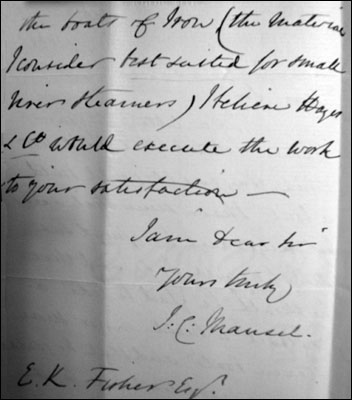 the boats of Iron (the material
I consider best suited for small
river steamers) I believe Hayes
& Co would execute the work
to your satisfaction —
I am Dear Sir
Yours truly
J. C. Mansel.
E. K. Fisher Esqr.